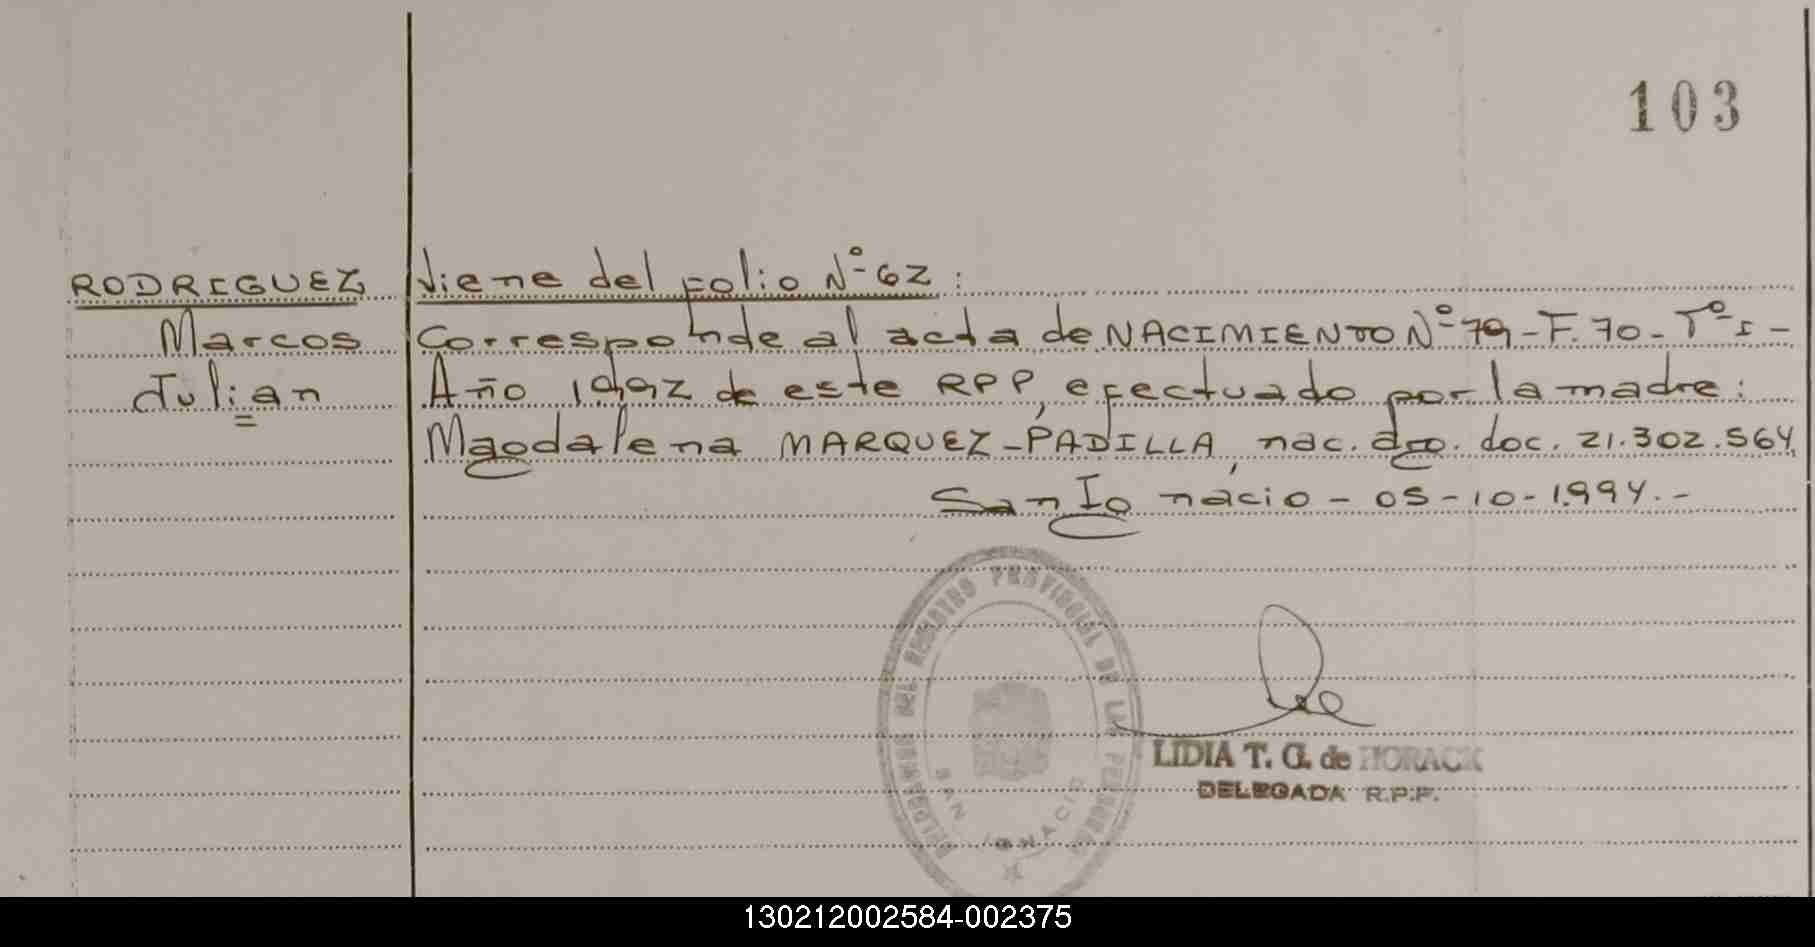 103
RODRIGUEZ Viene del folio Nº 62:
Marcos Corresponde al acta de NACIMIENTO Nº 79-F.70-Tº I-
Julian Año 1992 de este RPP, efectuado por la madre:
Magdalena MARQUEZ-PADILLA, nac. arg. doc. 21.302.564,
San Ignacio - 05-10-1994.-
DELEGACION DEL REGISTRO PROVINCIAL DE LAS PERSONAS
SAN IGNACIO
LIDIA T. G. de HORACK
DELEGADA R.P.P.
130212002584-002375